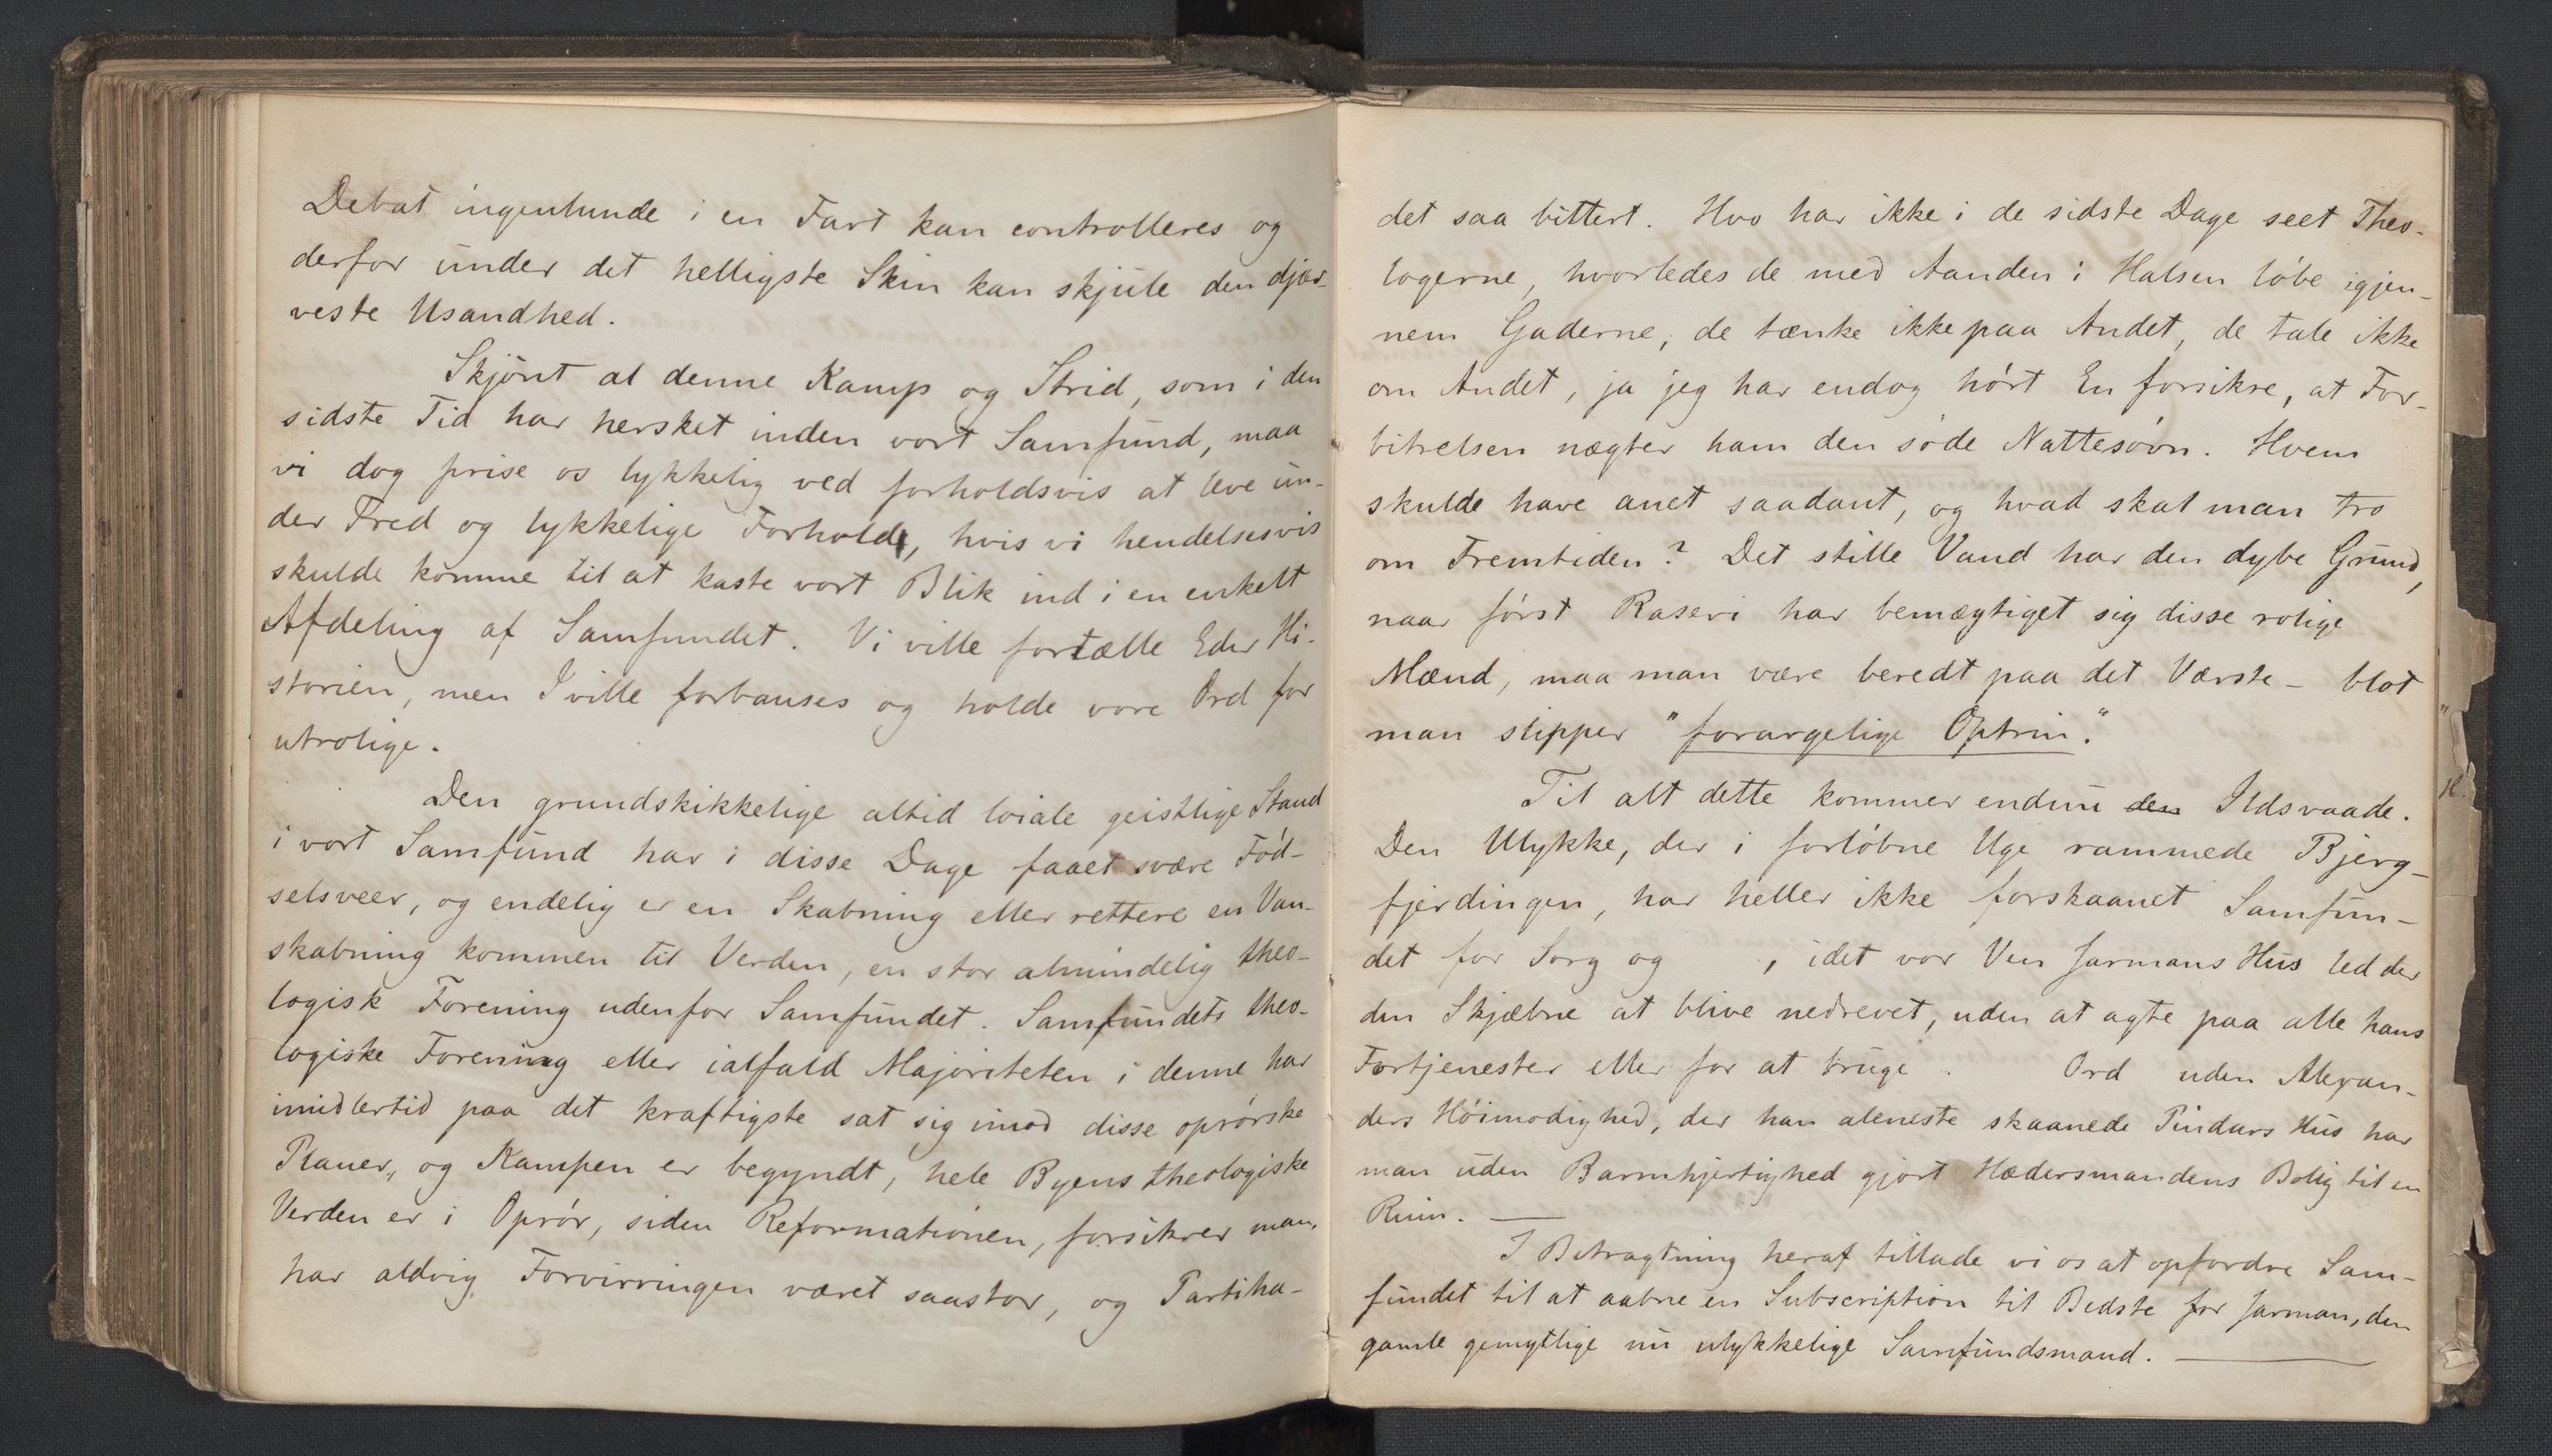 Debat ingenlunde i en Fart kan controlleres og
derfor under det helligste Skin kan skjule den djær-
veste Usandhed.
Skjönt al denne Kamp og Strid, som i den
sidste Tid har hersket inden vort Samfund, maa
vi dog prise os lykkelig ved forholdsvis at leve un-
der Fred og lykkelige Forhold, hvis vi hendelsesvis
skulde komme til at kaste vort Blik ind i en enkelt
Afdeling af Samfundet. Vi ville fortælle Eder Hi-
storien, men I ville forbauses og holde vore Ord for
utrolige.
Den grundskikkelige altid loiale geistlige Stand
i vort Samfund har i disse Dage faaet svære Föd-
selsveer, og endelig er en Skabning eller rettere en Van-
skabning kommen til Verden, en stor almindelig theo-
logisk Forening udenfor Samfundet. Samfundets theo-
logiske Forening eller ialfald Majoriteten i denne har
imidlertid paa det kraftigste sat sig imod disse oprørske
Planer, og Kampen er begyndt, hele Byens theologiske
Verden er i Oprör, siden Reformationen, forsikrer man,
har aldrig Forvirringen været saa stor, og Partiha-
det saa bittert. Hvo har ikke i de sidste Dage seet Theo-
logerne, hvorledes de med Aanden i Halsen löbe igjen-
nem Gaderne, de tænke ikke paa Andet, de tale ikke
om Andet, ja jeg har endog hört En forsikre, at For-
bitrelsen nægter ham den söde Nattesövn. Hvem
skulde have anet saadant, og hvad skal man tro
om Fremtiden? Det stille Vand har den dybe Grund,
naar först Raseri har bemægtiget sig disse rolige
Mænd, maa man være beredt paa det Værste - blot
man slipper "forargelige Optrin".
Til alt dette kommer endnu den Ildsvaade.
Den Ulykke, der i forlöbne Uge rammede Bjerg-
fjerdingen, har heller ikke forskaanet Samfun-
det for Sorg og , idet vor Ven Jarmans Hus led der
den Skjæbne at blive nedrevet, uden at agte paa alle hans
Fortjenester eller for at bruge . Ord uden Alexan-
ders Höimodighed, der han aleneste skaanede Pindars Hus har
man uden Barmhjertighed gjort Hædersmandens Bolig til en
Ruin. —
I Betragtning heraf tillade vi os at opfordre Sam-
fundet til at aabne en Subscription til Bedste for Jarman, den
gamle gemytlige nu ulykkelige Samfundsmand. —